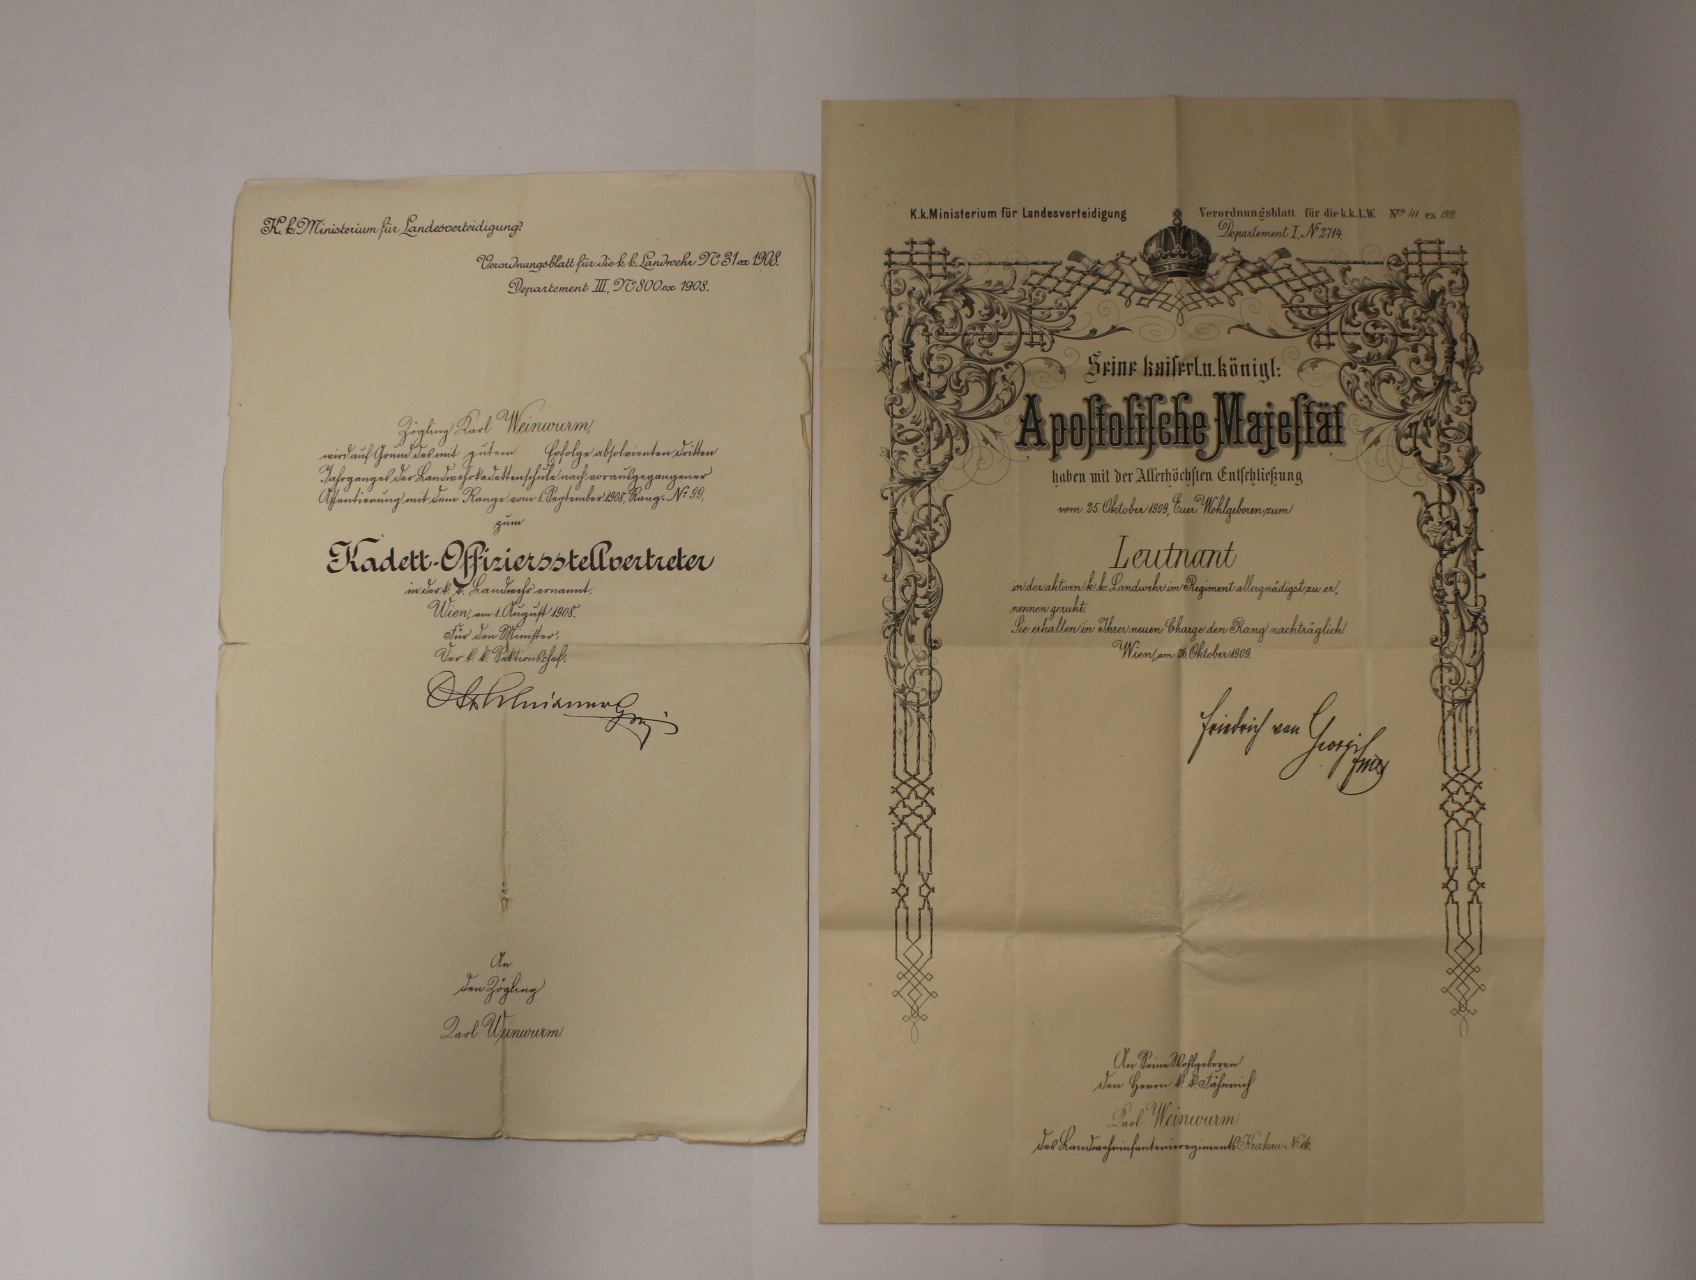 K. k. Ministerium für Landesverteidigung.
Verordnungsblatt für die k. k. Landwehr No 31 ex 1908.
Departement III, No 800 ex 1908.
Zögling Karl Weinwurm,
wird auf Grund des mit gutem Erfolge absolvierten dritten
Jahrganges der Landwehrkadettenschule nach vorausgegangener
Assentierung mit dem Range vom 1. September 1908, Rang. No 99,
zum
Kadett-Offiziersstellvertreter
in der k. k. Landwehr ernannt.
Wien, am 1. August 1908.
Für den Minister:
Der k. k. Sektionschef:
An
den Zögling
Karl Weinwurm
K.k. Ministerium für Landesverteidigung
Verordnungsblatt für die k.k. L.W. Nro 41 ex 1909.
Departement I, No 2714.
Seine kaiserl. u. königl:
Apostolische Majestät
haben mit der Allerhöchsten Entschließung
vom 25. Oktober 1909, Euer Wohlgeboren zum
Leutnant
in der aktiven k. k. Landwehr im Regiment allergnädigst zu er-
nennen geruht.
Sie erhalten in Ihrer neuen Charge den Rang nachträglich.
Wien, am 26. Oktober 1909.
Friedrich von Georgi
An Seine Wohlgeboren
den Herrn k. k. Fähnrich
Karl Weinwurm
des Landwehrinfanterieregiments Krakau No 16.